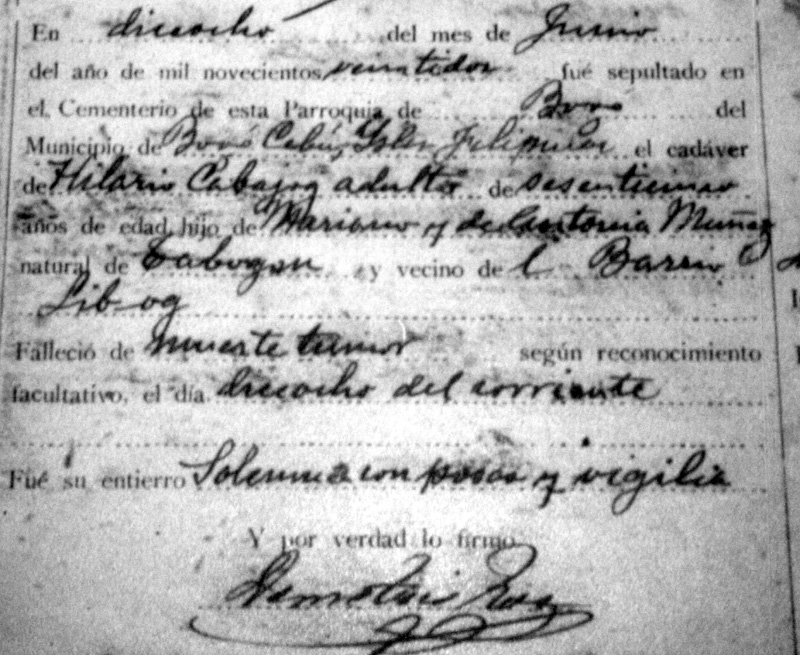 En dieciocho del mes de Junio
del año de mil novecientos veintidos fué sepultado en
el Cementerio de esta Parroquia de Bovo del
Municipio de Bovo Cebú, Islas Filipinas el cadáver
de Hilario Cabajog adulto de
años de edad, hijo de Mariano y de Antonia Muñoz
natural de Tabogon y vecino de l Barrio
Libog
Falleció de muerte tumor según reconocimiento
facultativo, el día dieciocho del corriente
Fué su entierro Solemne con posas y vigilia
Y por verdad lo firmo.